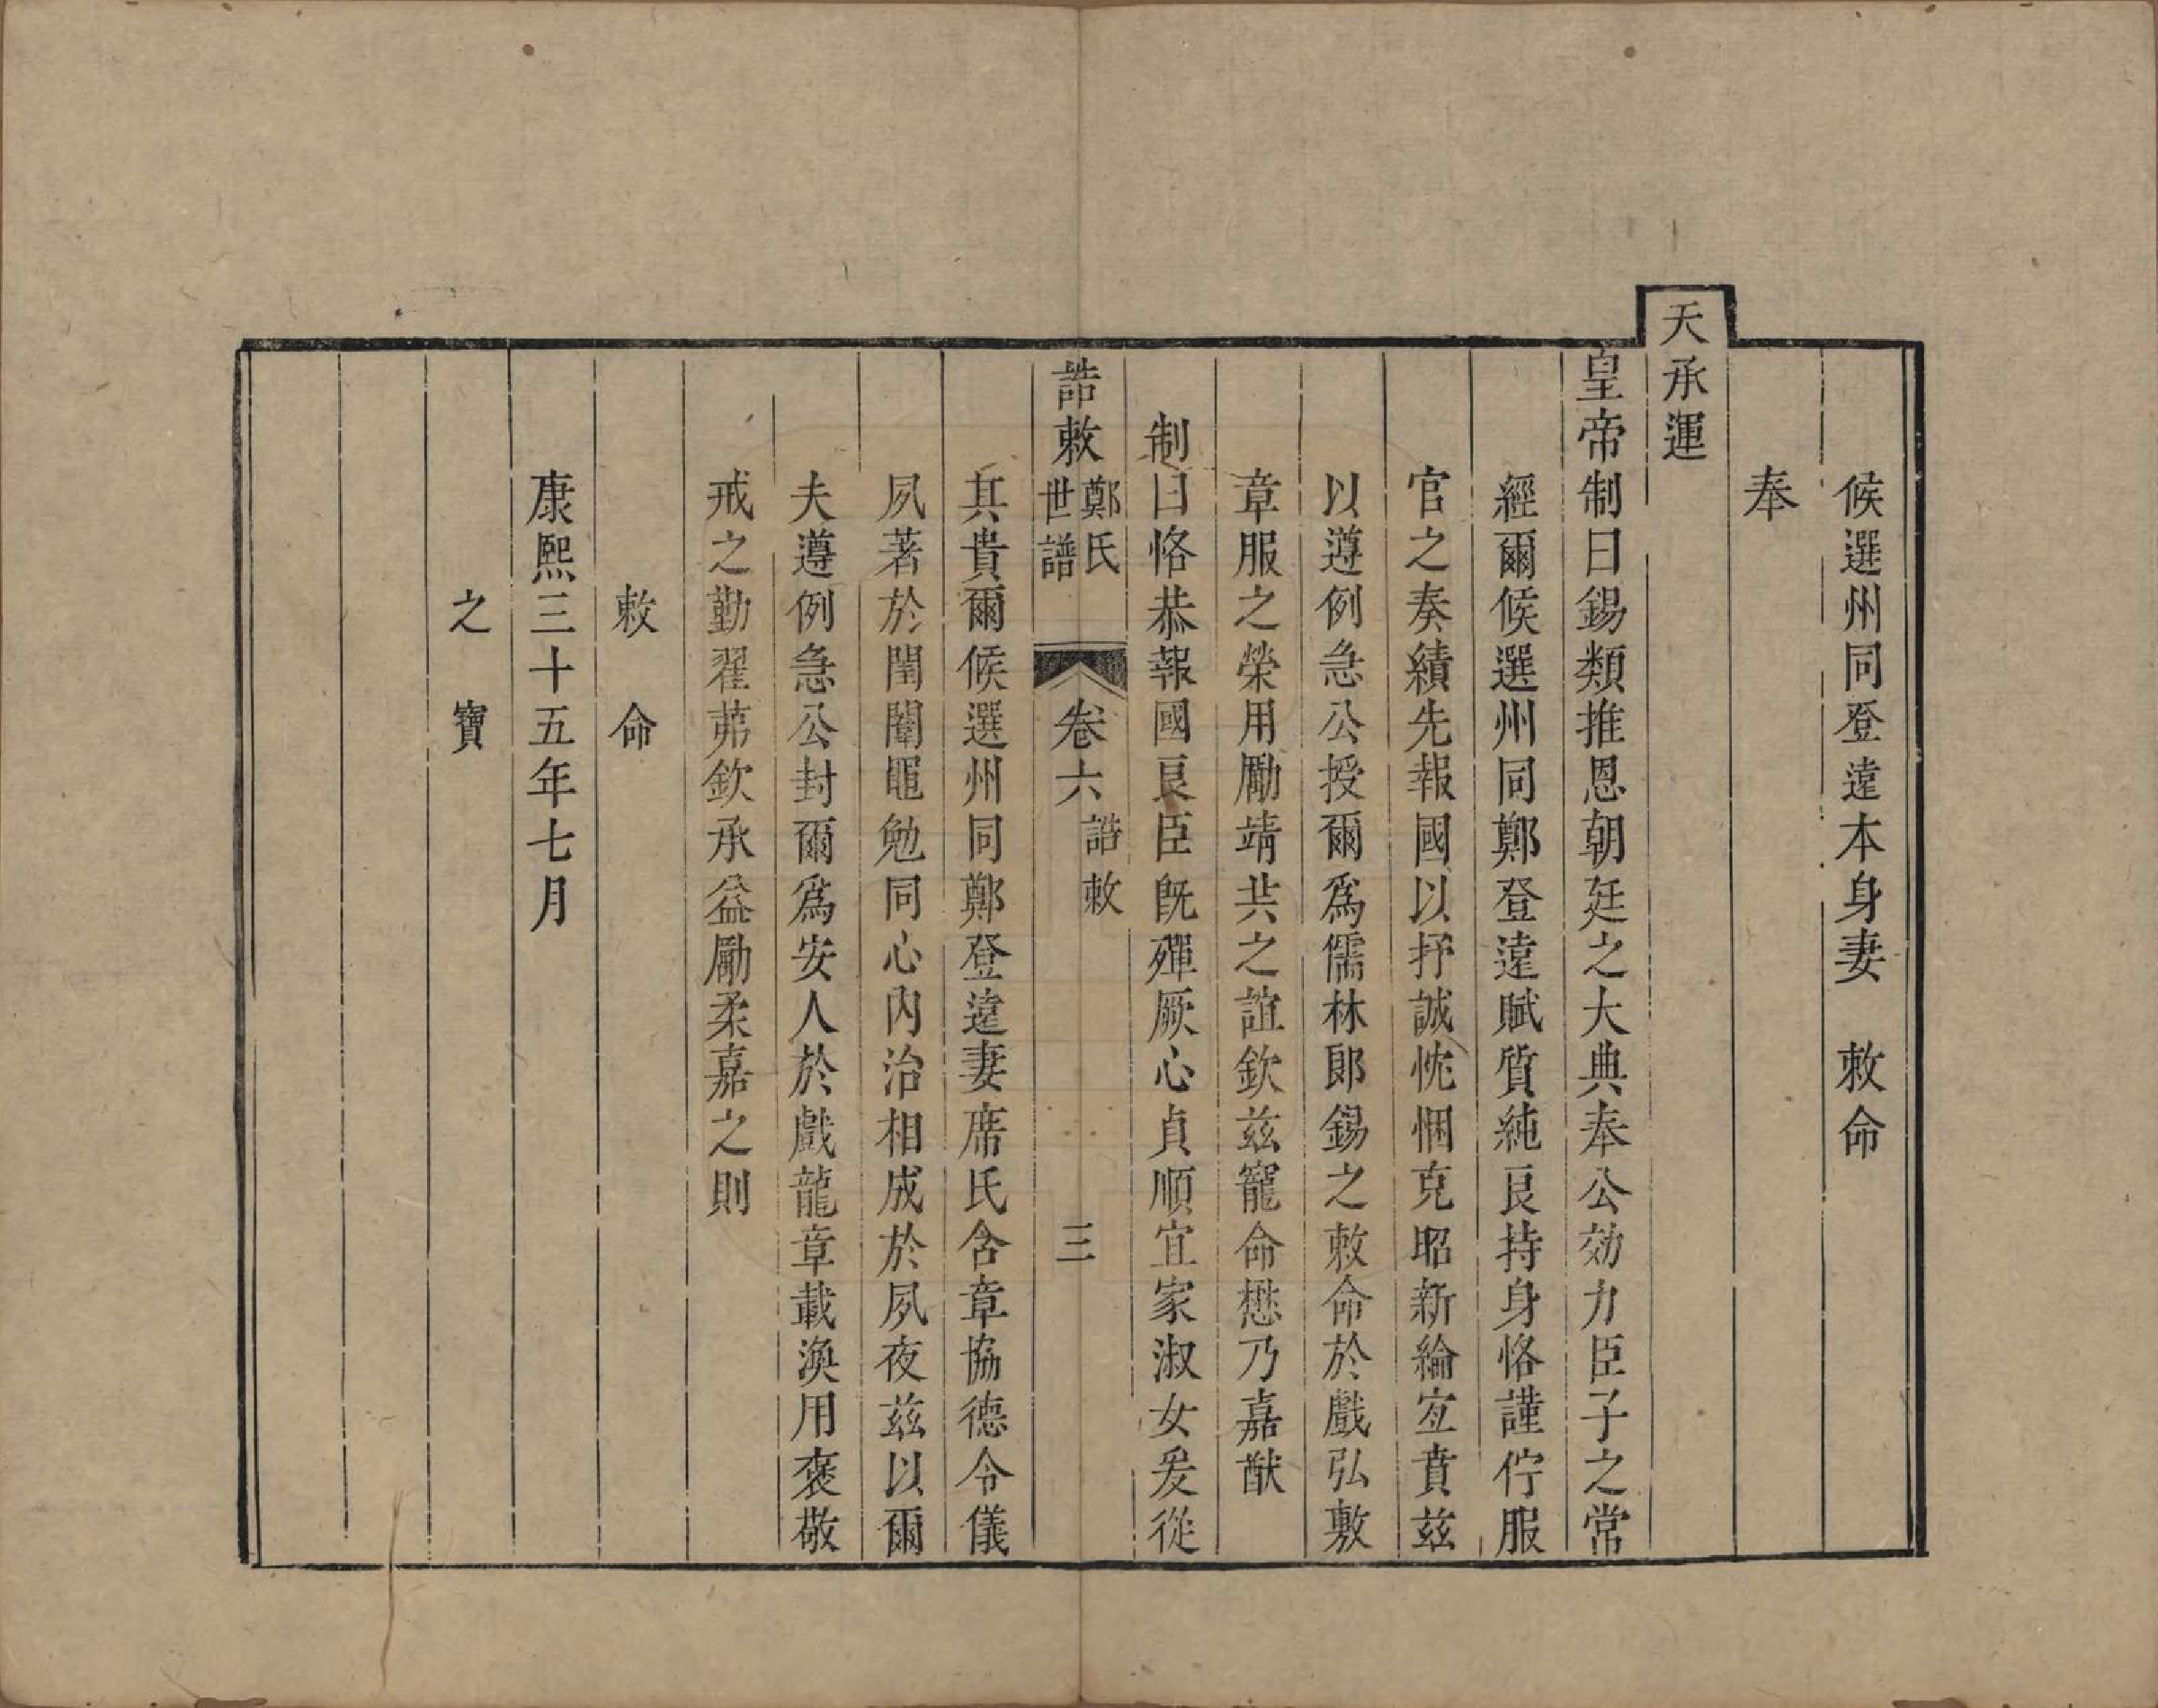 候選州同登逵本身妻　敕命
奉
天承運
皇帝制曰錫類推恩朝廷之大典奉公効力臣子之常
經爾候選州同鄭登逵賦質純良持身恪謹佇服
官之奏績先報國以抒誠忱悃克昭新綸宜賁兹
以遵例急公授爾爲儒林郎錫之敕命於戲弘敷
章服之榮用勵靖共之誼欽兹寵命懋乃嘉猷
制曰恪恭報國良臣旣殫厥心貞順宜家淑女爰從
誥敕 鄭氏世譜 卷六 誥敕 三
其貴爾候選州同鄭登逵妻席氏含章協德令儀
夙著於閨闈黽勉同心内治相成於夙夜兹以爾
夫遵例急公封爾爲安人於戲龍章載渙用褒敬
戒之勤翟茀欽承益勵柔嘉之則
敕　命
康熙三十五年七月
之　寶